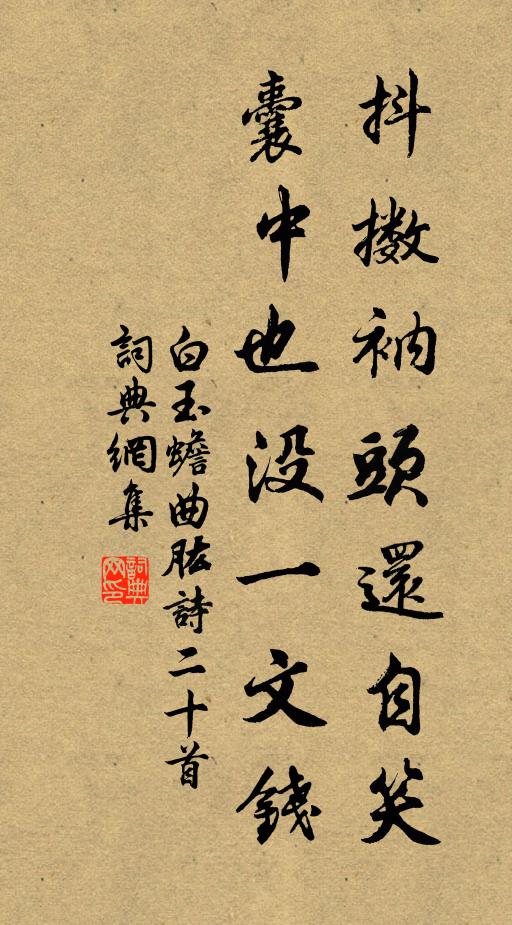 抖擻衲頭還自笑
囊中也没一文錢
白玉蟾曲肱詩二十首
詞典網集
詞典網印